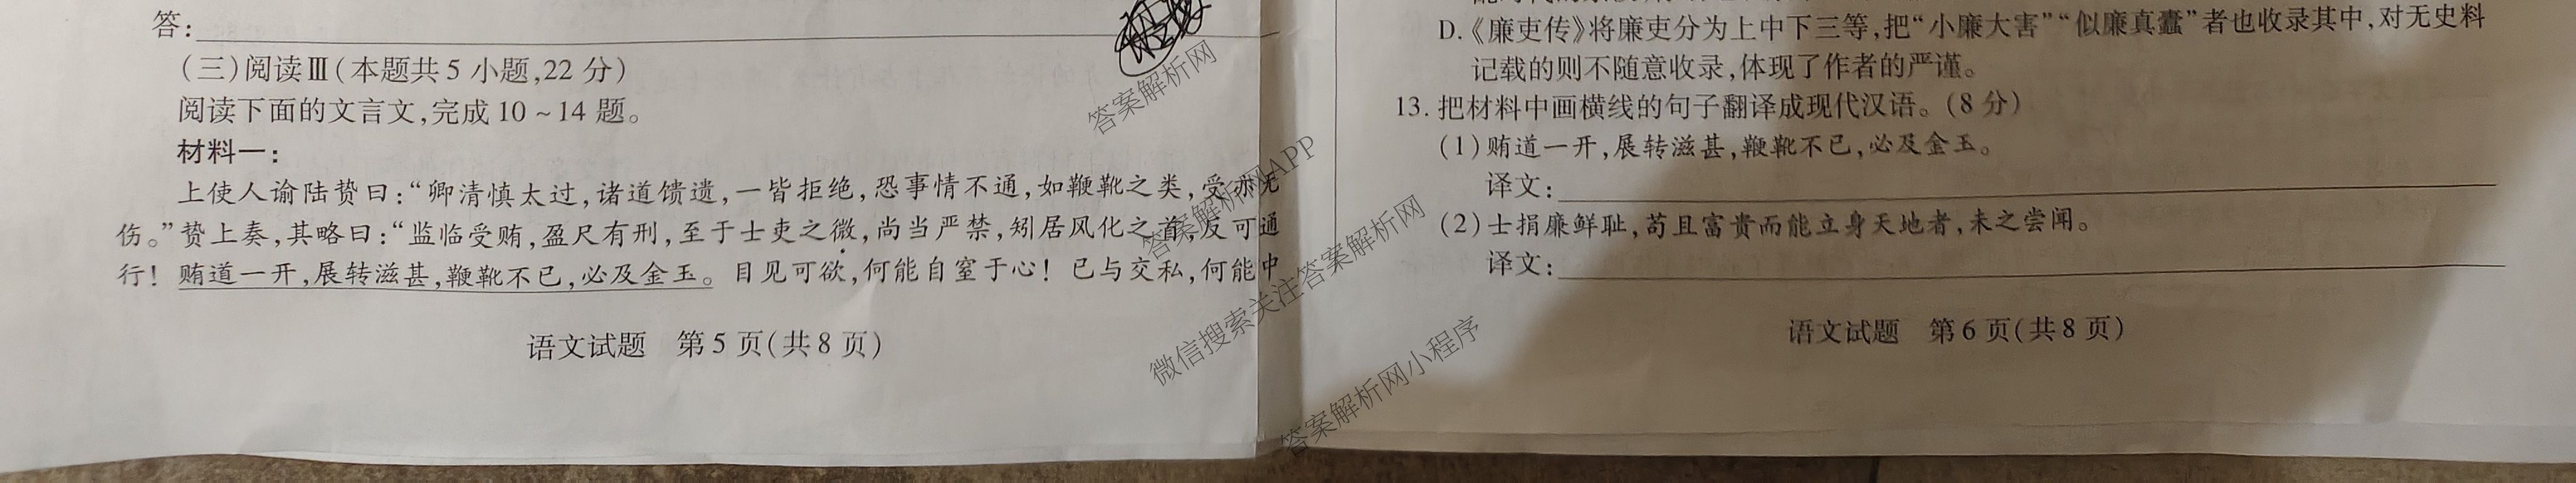 答:
(三)阅读Ⅲ(本题共5小题,22分)
阅读下面的文言文,完成10~14题。
材料一:
上使人谕陆贽曰:“卿清慎太过,诸道馈遗,一皆拒绝,恐事情不通,如鞭靴之类,受亦无
伤。”贽上奏,其略曰:“监临受贿,盈尺有刑,至于士吏之微,尚当严禁,矧居风化之首,反可通
行!贿道一开,展转滋甚,鞭靴不已,必及金玉。目见可欲,何能自窒于心!已与交私,何能中
语文试题 第5页(共8页)
D.《廉吏传》将廉吏分为上中下三等,把“小廉大害”“似廉真蠹”者也收录其中,对无史料
记载的则不随意收录,体现了作者的严谨。
13.把材料中画横线的句子翻译成现代汉语。(8分)
(1)贿道一开,展转滋甚,鞭靴不已,必及金玉。
译文:
(2)士捐廉鲜耻,苟且富贵而能立身天地者,未之尝闻。
译文:
语文试题 第6页(共8页)
答案解析网
答案解析网APP
微信搜索关注答案解析网
答案解析网小程序